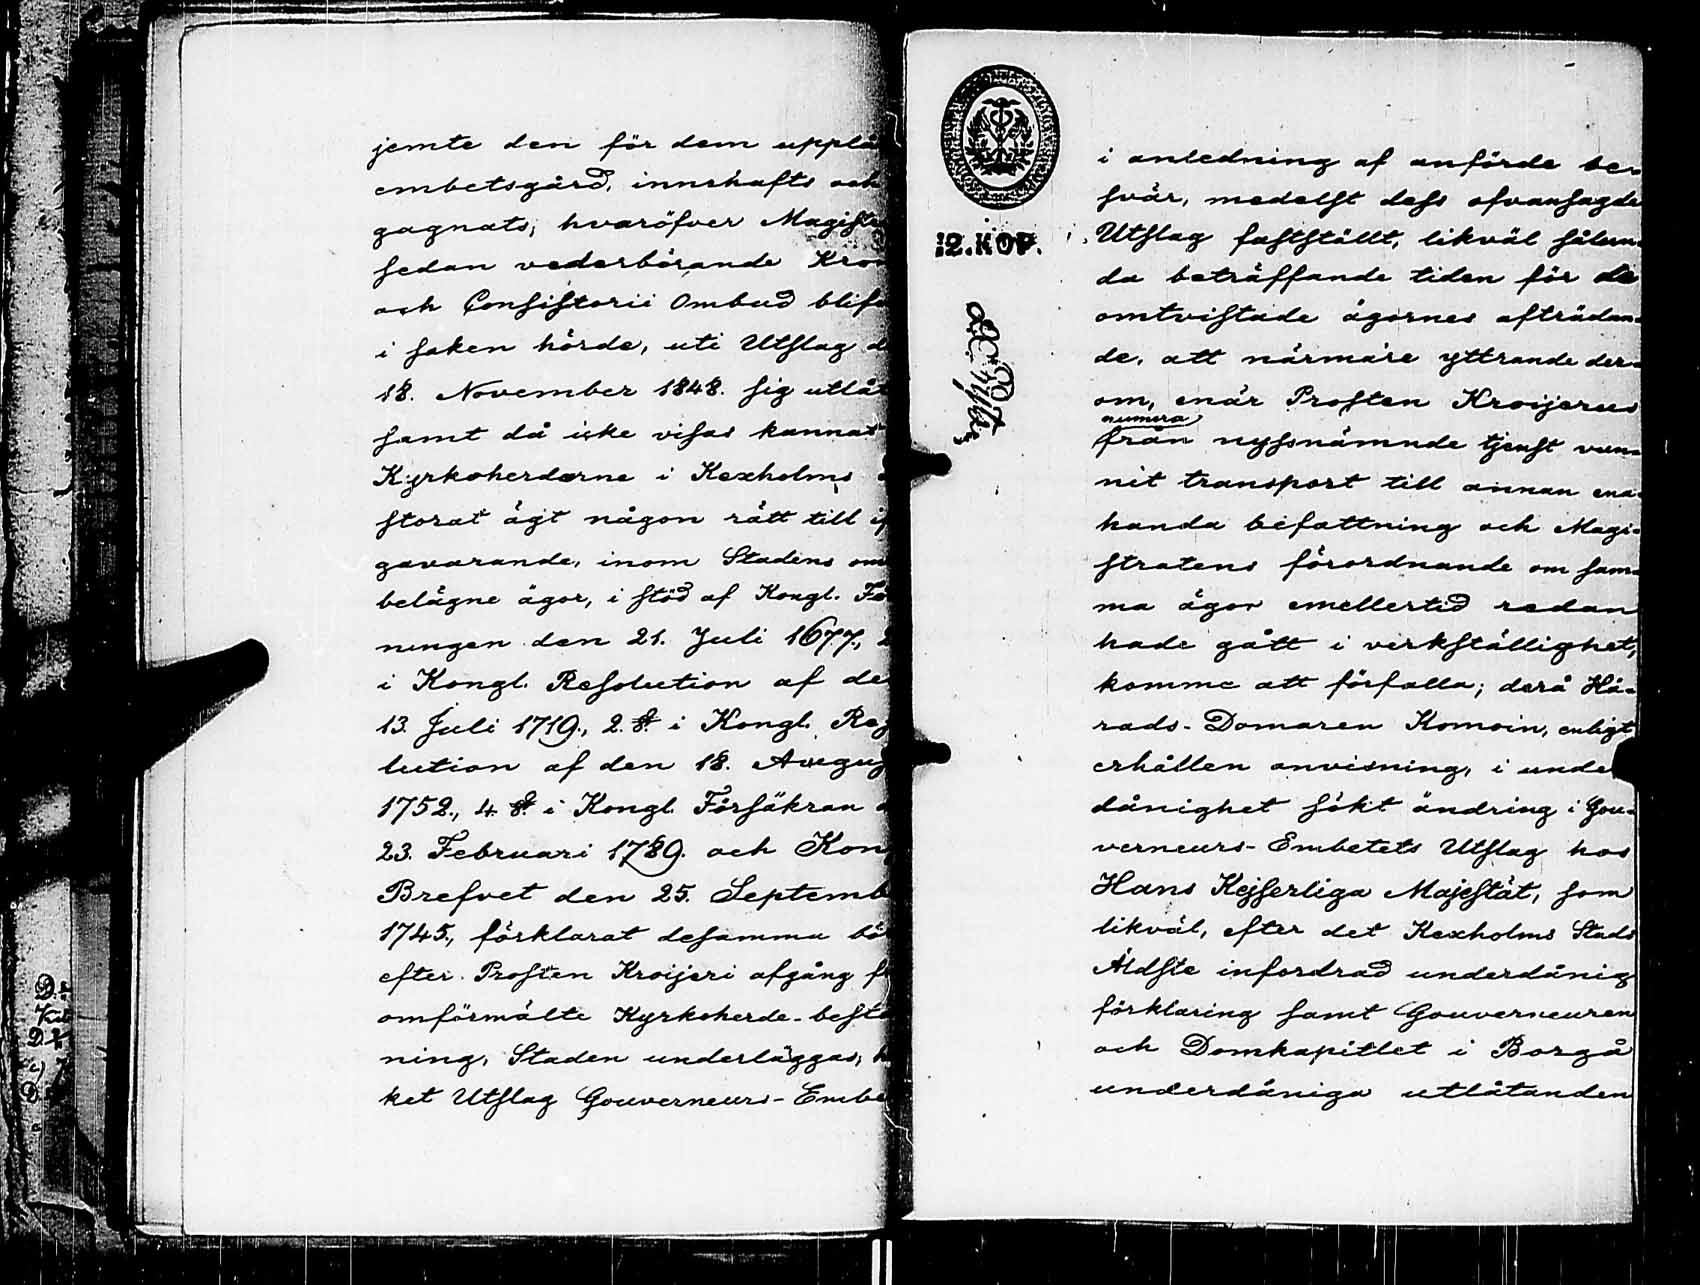 jemte den för dem upplå
embetsgård, innehafts och
gagnats; hvaröfver Magistr
sedan vederbörande Kron
och Consistorii Ombud blifv
i saken hörde, uti Utslag d
18. November 1848. sig utlåt
samt då icke visas kunnat
Kyrkoherdarne i Kexholms
storat ägt någon rätt till if
gavarande, inom Stadens om
belägne ägor, i stöd af Kongl. Fö
ningen den 21. Juli 1677., 2
i Kongl. Resolution af de
13. Juli 1719., 2. §. i Kongl. Reg
lution af den 18. Augus
1752., 4. §. i Kongl. Försäkran
23. Februari 1789. och Kon
Brefvet den 25. Septemb
1745., förklarat desamma bö
efter Prosten Kroijeri afgång f
omförmälte Kyrkoherde-bestä
ning, Staden underläggas, h
ket Utslag Gouverneurs-Embe
12. KOP.
i anledning af anförde be-
svär, medelst dess ofvansagde
Utslag fastställt, likväl sålun-
da beträffande tiden för de
omtvistade ägornes afträdan-
de, att närmare yttrande der-
om, enär Prosten Kroijerus
numera
från nyssnämnde tjenst vun-
nit transport till annan ena-
handa befattning och Magi-
stratens förordnande om sam-
ma ägor emellertid redan
hade gått i verkställighet,
komme att förfalla; derå Hä-
rads-Domaren Komoin, enligt
erhållen anvisning, i under
dånighet sökt ändring i Gou-
verneurs-Embetets Utslag hos
Hans Kejserliga Majestät, som
likväl, efter det Kexholms Stads
Äldste infordrad underdånig
förklaring samt Gouverneuren
och Domkapitlet i Borgå
underdåniga utlåtanden